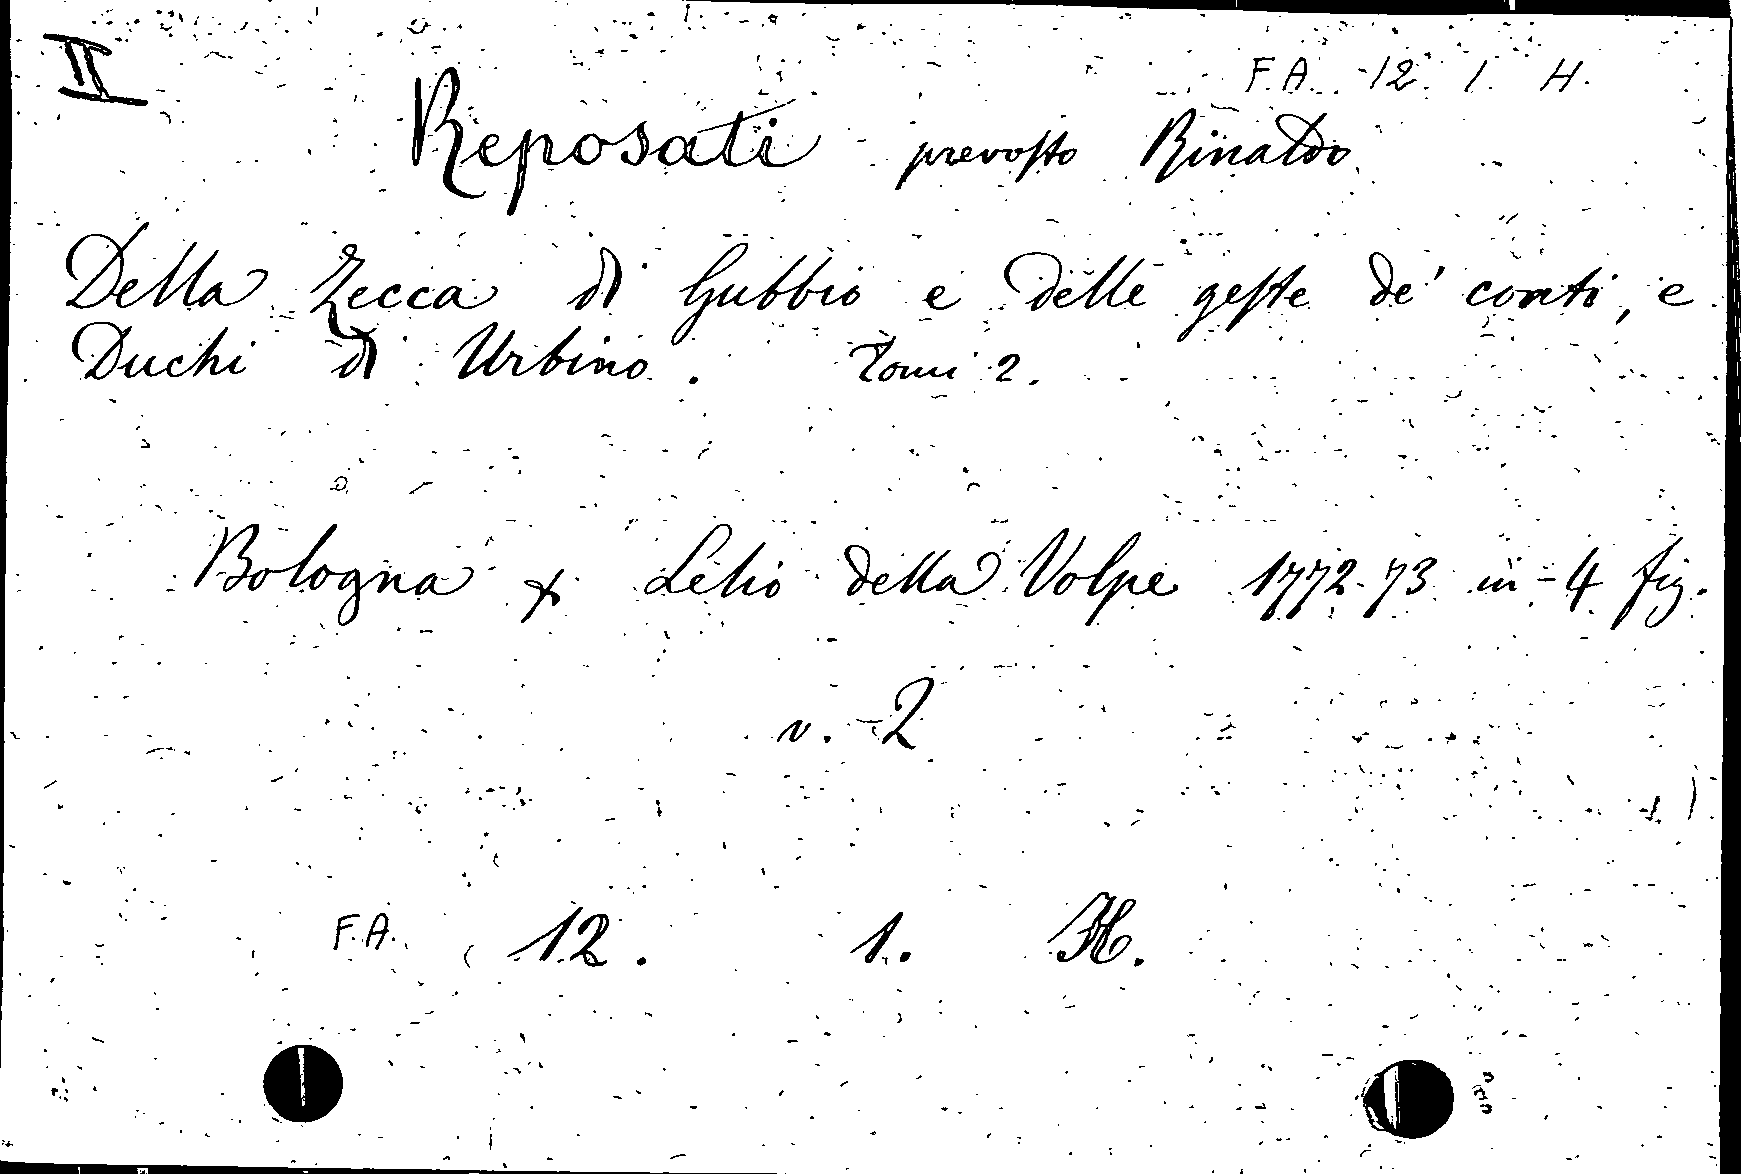 II
F.A. 12. 1. H.
Reposati prevosto Rinaldo
Della Zecca di Gubbio e delle geste de' conti, e
Duchi di Urbino. Tomi 2.
Bologna x Lelio della Volpe 1772-73 in-4 fig.
v. 2
F.A. 12. 1. H.